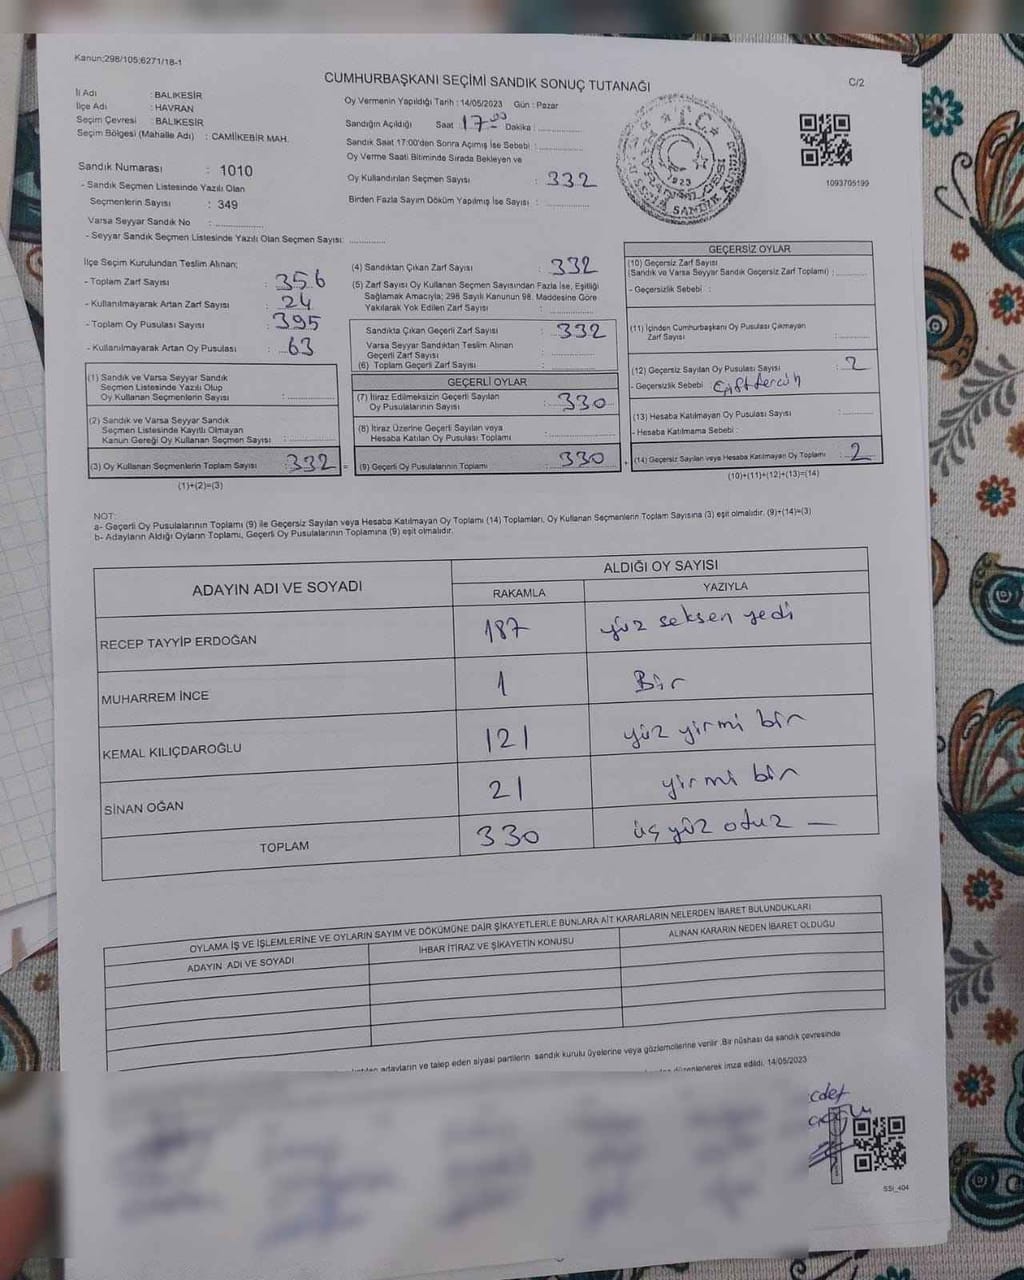 Kanun;298/105;6271/18-1
CUMHURBAŞKANI SEÇİMİ SANDIK SONUÇ TUTANAĞI
C/2
İl Adı : BALIKESİR
İlçe Adı : HAVRAN
Seçim Çevresi : BALIKESİR
Seçim Bölgesi (Mahalle Adı) : CAMİİKEBİR MAH.
Sandık Numarası : 1010
- Sandık Seçmen Listesinde Yazılı Olan
Seçmenlerin Sayısı : 349
Varsa Seyyar Sandık No :
- Seyyar Sandık Seçmen Listesinde Yazılı Olan Seçmen Sayısı:
Oy Vermenin Yapıldığı Tarih : 14/05/2023 Gün : Pazar
Sandığın Açıldığı Saat 17.00 Dakika :
Sandık Saat 17:00'den Sonra Açımış İse Sebebi :
Oy Verme Saati Bitiminde Sırada Bekleyen ve
Oy Kullandırılan Seçmen Sayısı : 332
Birden Fazla Sayım Döküm Yapılmış İse Sayısı :
T.C.
1923
1093705199
İlçe Seçim Kurulundan Teslim Alınan;
- Toplam Zarf Sayısı : 356
- Kullanılmayarak Artan Zarf Sayısı : 24
- Toplam Oy Pusulası Sayısı : 395
- Kullanılmayarak Artan Oy Pusulası : 63
(1) Sandık ve Varsa Seyyar Sandık
Seçmen Listesinde Yazılı Olup
Oy Kullanan Seçmenlerin Sayısı :
(2) Sandık ve Varsa Seyyar Sandık
Seçmen Listesinde Kayıtlı Olmayan
Kanun Gereği Oy Kullanan Seçmen Sayısı :
(3) Oy Kullanan Seçmenlerin Toplam Sayısı : 332 =
(1)+(2)=(3)
(4) Sandıktan Çıkan Zarf Sayısı : 332
(5) Zarf Sayısı Oy Kullanan Seçmen Sayısından Fazla İse, Eşitliği
Sağlamak Amacıyla; 298 Sayılı Kanunun 98. Maddesine Göre
Yakılarak Yok Edilen Zarf Sayısı :
Sandıkta Çıkan Geçerli Zarf Sayısı : 332
Varsa Seyyar Sandıktan Teslim Alınan
Geçerli Zarf Sayısı :
(6) Toplam Geçerli Zarf Sayısı :
GEÇERLİ OYLAR
(7) İtiraz Edilmeksizin Geçerli Sayılan
Oy Pusulalarının Sayısı : 330
(8) İtiraz Üzerine Geçerli Sayılan veya
Hesaba Katılan Oy Pusulası Toplamı :
(9) Geçerli Oy Pusulalarının Toplamı 330 +
GEÇERSİZ OYLAR
(10) Geçersiz Zarf Sayısı
(Sandık ve Varsa Seyyar Sandık Geçersiz Zarf Toplamı) :
- Geçersizlik Sebebi :
(11) İçinden Cumhurbaşkanı Oy Pusulası Çıkmayan
Zarf Sayısı :
(12) Geçersiz Sayılan Oy Pusulası Sayısı : 2
- Geçersizlik Sebebi :
(13) Hesaba Katılmayan Oy Pusulası Sayısı :
- Hesaba Katılmama Sebebi :
(14) Geçersiz Sayılan veya Hesaba Katılmayan Oy Toplamı : 2
(10)+(11)+(12)+(13)=(14)
NOT:
a- Geçerli Oy Pusulalarının Toplamı (9) ile Geçersiz Sayılan veya Hesaba Katılmayan Oy Toplamı (14) Toplamları, Oy Kullanan Seçmenlerin Toplam Sayısına (3) eşit olmalıdır. (9)+(14)=(3)
b- Adayların Aldığı Oyların Toplamı, Geçerli Oy Pusulalarının Toplamına (9) eşit olmalıdır.
ADAYIN ADI VE SOYADI
ALDIĞI OY SAYISI
RAKAMLA YAZIYLA
RECEP TAYYİP ERDOĞAN 187 yüz seksen yedi
MUHARREM İNCE 1 Bir
KEMAL KILIÇDAROĞLU 121 yüz yirmi bir
SİNAN OĞAN 21 yirmi bir
TOPLAM 330 üç yüz otuz —
OYLAMA İŞ VE İŞLEMLERİNE VE OYLARIN SAYIM VE DÖKÜMÜNE DAİR ŞİKAYETLERLE BUNLARA AİT KARARLARIN NELERDEN İBARET BULUNDUKLARI
ADAYIN ADI VE SOYADI İHBAR İTİRAZ VE ŞİKAYETİN KONUSU ALINAN KARARIN NEDEN İBARET OLDUĞU
adayların ve talep eden siyasi partilerin sandık kurulu üyelerine veya gözlemcilerine verilir .Bir nüshası da sandık çevresinde
düzenlenerek imza edildi. 14/05/2023
SSİ_404